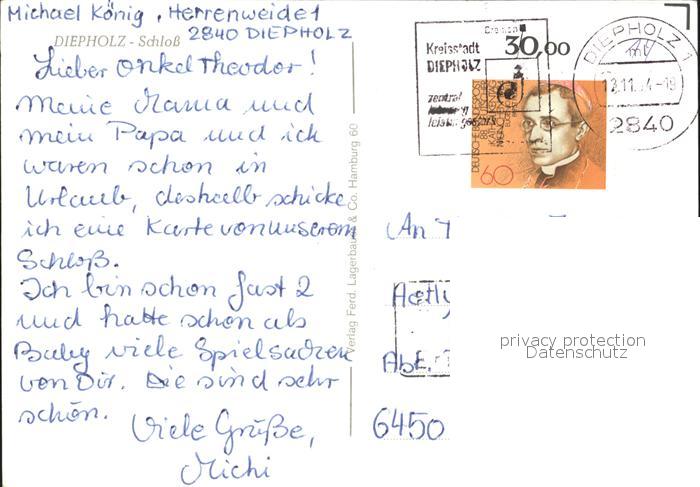 Michael König, Herrenweide 1
2840 DIEPHOLZ
DIEPHOLZ - Schloß
Lieber Onkel Theodor!
Meine Mama und
mein Papa und ich
waren schon in
Urlaub, deshalb schicke
ich eine Karte von unserem
Schloß.
Ich bin schon fast 2
und hatte schon als
Baby viele Spielsachen
von Dir. Die sind sehr
schön.
Viele Grüße,
Michi
Verlag Ferd. Lagerbauer & Co. Hamburg 60
Kreisstadt
DIEPHOLZ
zentral
30,00
DIEPHOLZ 1
2840
60
An
6450
privacy protection
Datenschutz